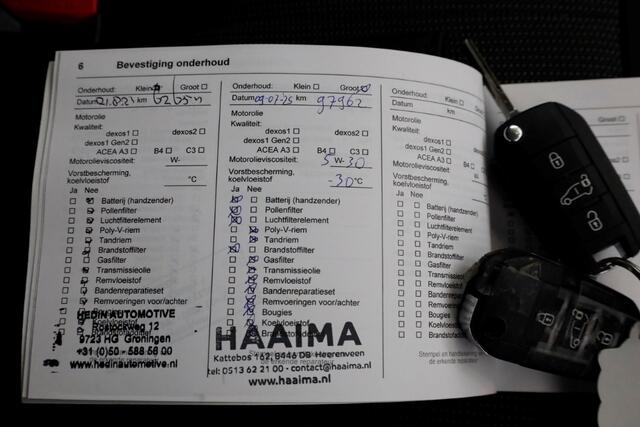 6 Bevestiging onderhoud
Onderhoud: Klein Groot
Datum km
Motorolie
Kwaliteit:
dexos1 dexos2
dexos1 Gen2
ACEA A3 B4 C3
Motorolieviscositeit: W-
Vorstbescherming,
koelvloeistof °C
Ja Nee
Batterij (handzender)
Pollenfilter
Luchtfilterelement
Poly-V-riem
Tandriem
Brandstoffilter
Gasfilter
Transmissieolie
Remvloeistof
Bandenreparatieset
Remvoeringen voor/achter
HEDIN AUTOMOTIVE
Rostockweg 12
9723 HG Groningen
+31 (0)50 - 588 56 00
www.hedinautomotive.nl
Onderhoud: Klein Groot
Datum 09-07-25 km 97962
Motorolie
Kwaliteit:
dexos1 dexos2
dexos1 Gen2
ACEA A3 B4 C3
Motorolieviscositeit: 5 W-30
Vorstbescherming,
koelvloeistof -30 °C
Ja Nee
Batterij (handzender)
Pollenfilter
Luchtfilterelement
Poly-V-riem
Tandriem
Brandstoffilter
Gasfilter
Transmissieolie
Remvloeistof
Bandenreparatieset
Remvoeringen voor/achter
Bougies
Koelvloeistof
HAAIMA
Kattebos 162, 8446 DB Heerenveen
tel: 0513 62 21 00 - contact@haaima.nl
www.haaima.nl
Onderhoud: Klein
Datum km
Motorolie
Kwaliteit:
dexos1
dexos1 Gen2
ACEA A3
Motorolieviscositeit:
Vorstbescherming,
koelvloeistof
Ja Nee
Batterij
Pollenfilter
Luchtfilterelement
Poly-V-riem
Tandriem
Brandstoffilter
Gasfilter
Remvloeistof
Bougies
Koelvloeistof
Stempel en
de erkende reparateur
Groot